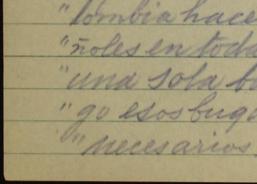 "lombia hace
"ñoles en toda
"una sola b
"go esos buq
"necesarios.